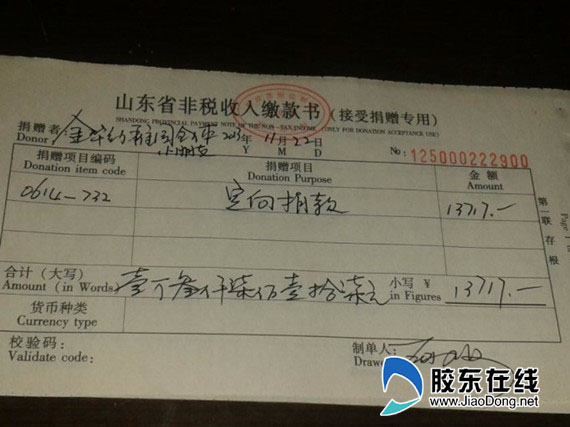 山东省非税收入缴款书（接受捐赠专用）
SHANDONG PROVINCIAL PAYMENT NOTE OF THE NON-TAX INCOME (ONLY FOR DONATION ACCEPTANCE USE)
捐赠者 2013年11月22日
Donor Y M D
No: 125000222900
捐赠项目编码 捐赠项目 金额
Donation item code Donation Purpose Amount
0614-732 定向捐款 13717.-
合计（大写） 壹万叁仟柒佰壹拾柒元 小写￥ 13717.-
Amount (in Words) in Figures
货币种类
Currency type
校验码：
Validate code:
制单人：
第一联 存根
胶东在线
www.JiaoDong.net